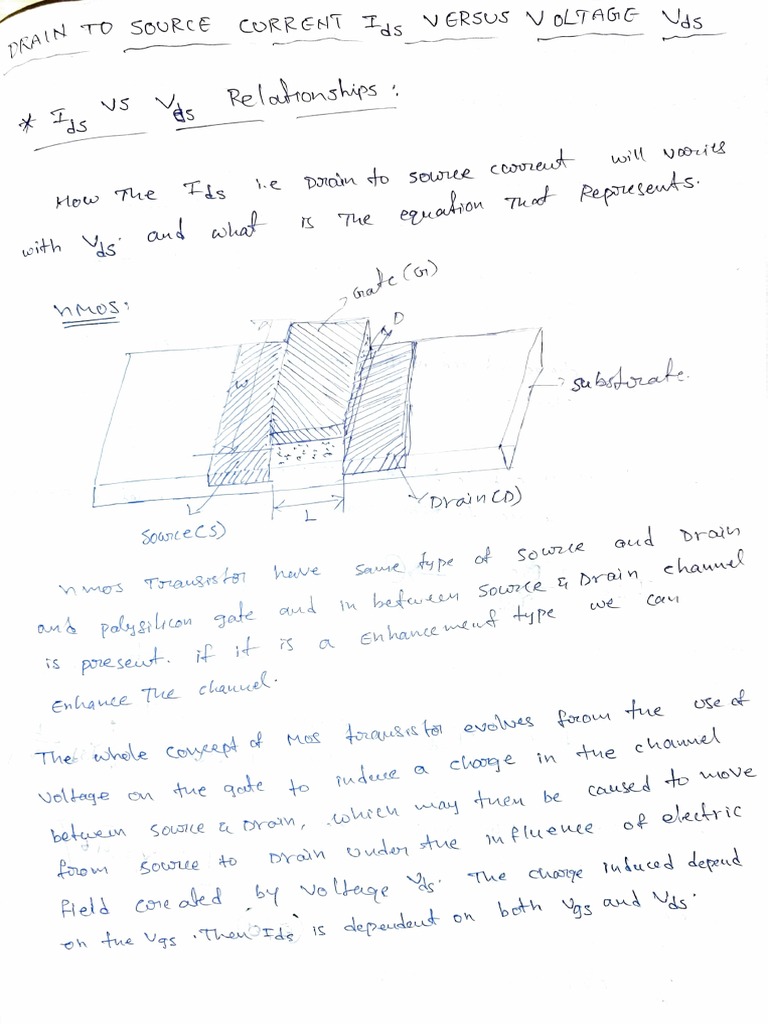 DRAIN TO SOURCE CURRENT Ids VERSUS VOLTAGE Vds
* Ids VS Vds Relationships:
How The Ids i.e Drain to source current will varies
with Vds. and what is The equation That Represents.
nMOS:
Gate(G)
D
W
substrate.
L
Drain(D)
Source(S)
nmos Transistor have same type of source and Drain
and polysilicon gate and in between source & Drain channel
is present. if it is a Enhancement type we can
Enhance The channel.
The whole concept of Mos transistor evolves from the use of
Voltage on the gate to induce a charge in the channel
between source & Drain, which may then be caused to move
from source to Drain under the influence of electric
field created by voltage Vds. The charge induced depend
on the Vgs. Then Ids is dependent on both Vgs and Vds.